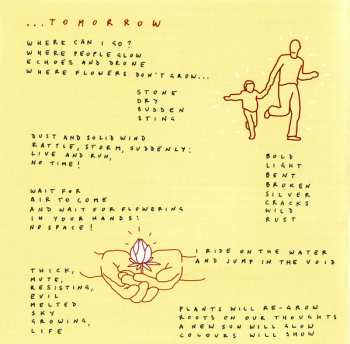 ...TOMORROW
WHERE CAN I GO?
WHERE PEOPLE GLOW
ECHOES AND DRONE
WHERE FLOWERS DON'T GROW...
STONE
DRY
SUDDEN
STING
DUST AND SOLID WIND
RATTLE, STORM, SUDDENLY:
LIVE AND RUN,
NO TIME!
BOLD
LIGHT
BENT
BROKEN
SILVER
CRACKS
WILD
RUST
WAIT FOR
AIR TO COME
AND WAIT FOR FLOWERING
IN YOUR HANDS:
NO SPACE!
I RIDE ON THE WATER
AND JUMP IN THE VOID
THICK,
MUTE,
RESISTING,
EVIL
MELTED
SKY
GROWING,
LIFE
PLANTS WILL RE-GROW
ROOTS ON OUR THOUGHTS
A NEW SUN WILL GLOW
COLOURS WILL SHOW